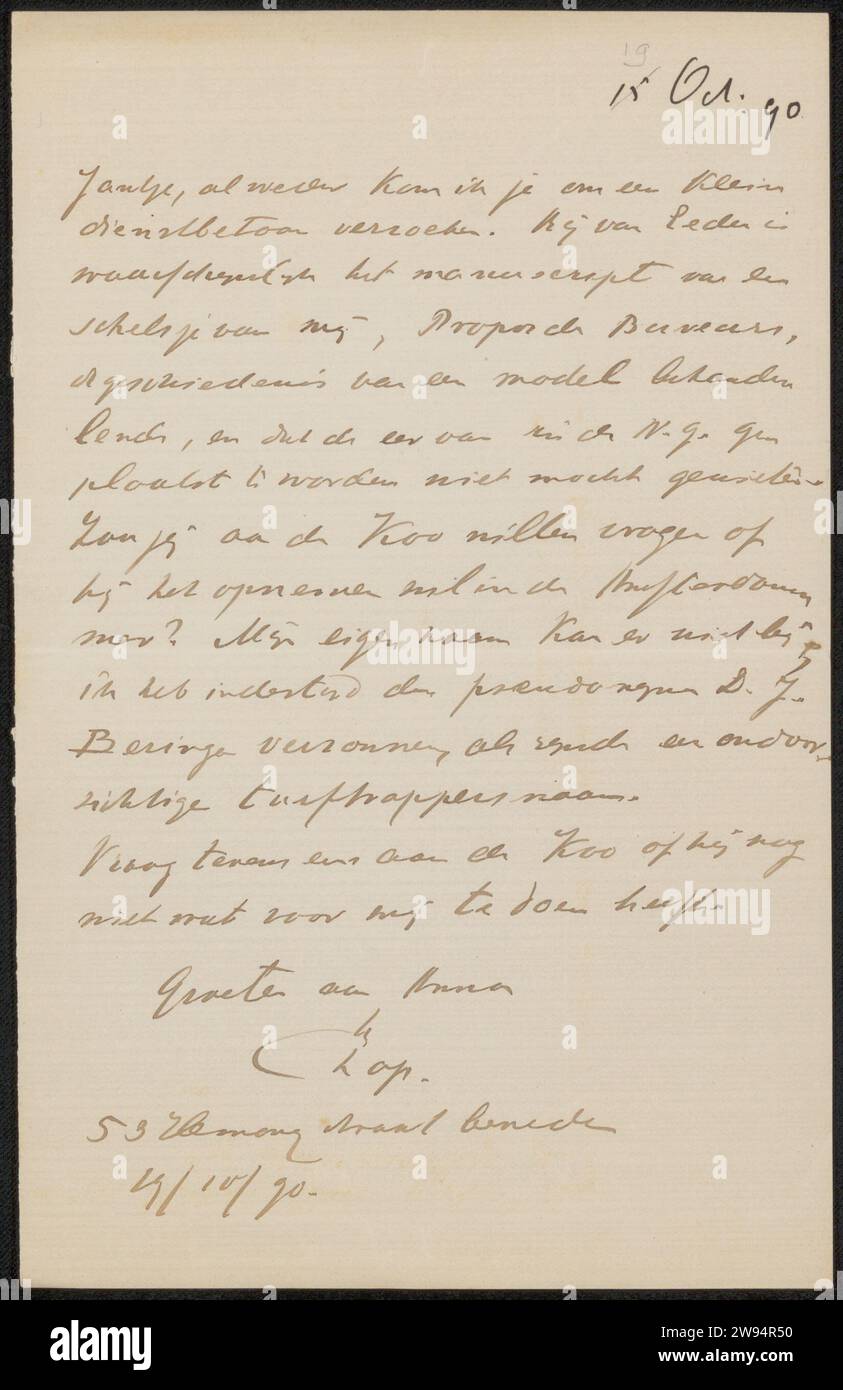 19
15 Oct. 90
Jantje, al weder kom ik je om een klein
dienstbetoon verzoeken. Bij van Eeden is
waarschijnlijk het manuscript van een
schetsje van mij, Propos de Buveurs,
de geschiedenis van een model behande
lende, en dat de eer van in de N.G. ge
plaatst te worden niet mocht genieten.
Zou jij aan de Koo willen vragen of
hij het opnemen wil in de Amsterdam
mer? Mijn eigen naam kan er niet bij
ik heb indertijd den pseudoniem D. J.
Beringa verzonnen, als zijnde een ondoor-
zichtige turftrappersnaam.
Vraag tevens eens aan de Koo of hij nog
niet wat voor mij te doen heeft.
Groeten aan Anna
Chap.
53 Hemony straat beneden
19/10/90.
alamy
Image ID: 2W94R50
www.alamy.com